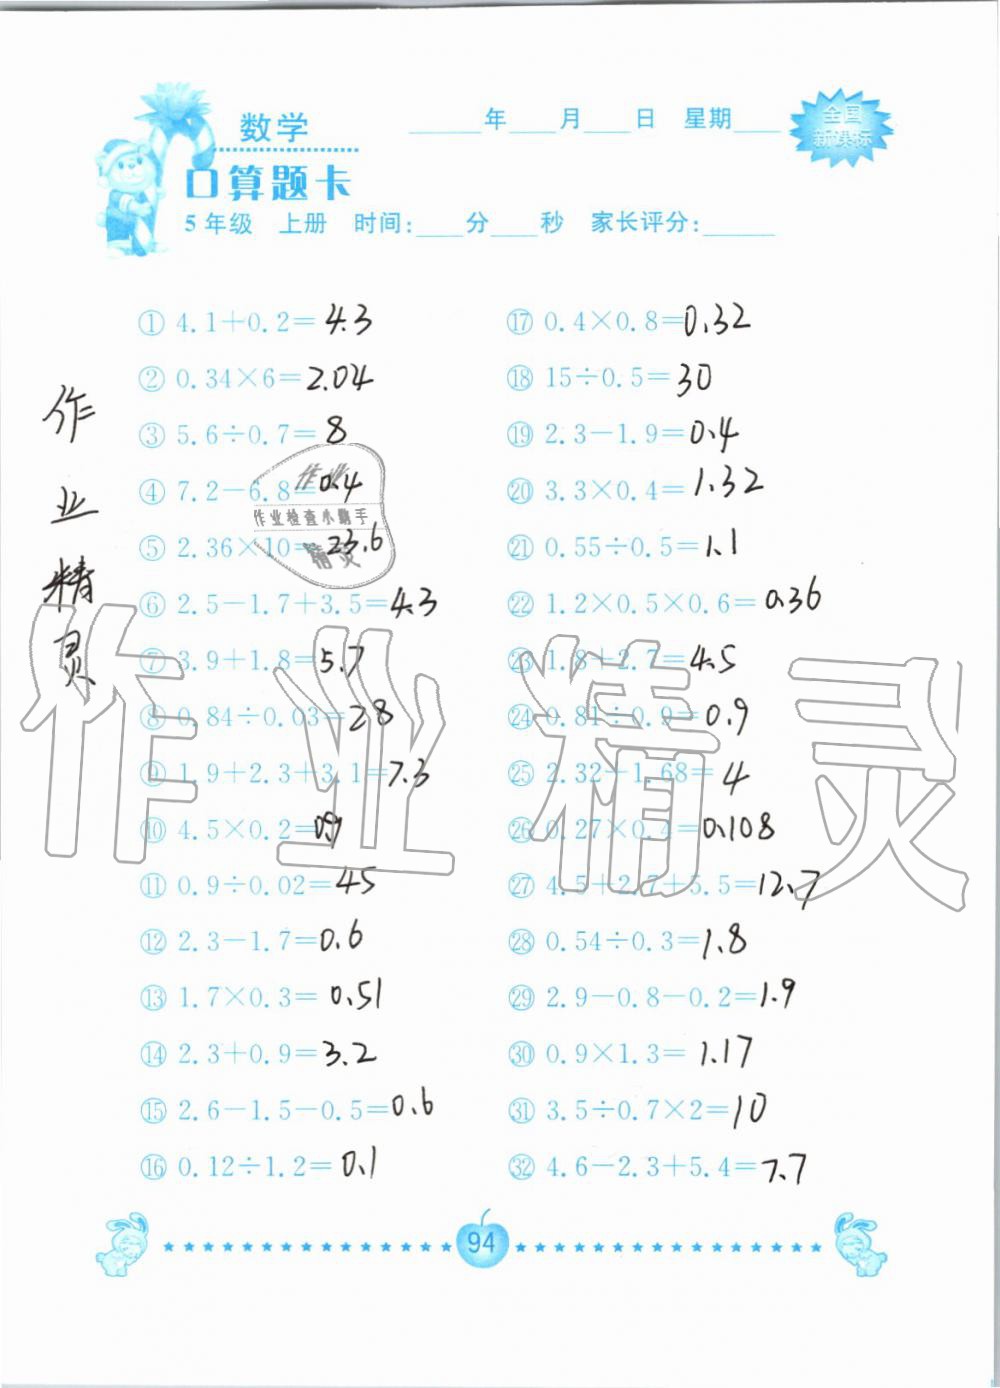 数学
____年____月____日 星期____
全国
新课标
口算题卡
5年级 上册 时间:____分____秒 家长评分:______
① 4.1+0.2=4.3
② 0.34×6=2.04
③ 5.6÷0.7=8
④ 7.2-6.8=0.4
⑤ 2.36×10=23.6
⑥ 2.5-1.7+3.5=4.3
⑦ 3.9+1.8=5.7
⑧ 0.84÷0.03=28
⑨ 1.9+2.3+3.1=7.3
⑩ 4.5×0.2=0.9
⑪ 0.9÷0.02=45
⑫ 2.3-1.7=0.6
⑬ 1.7×0.3=0.51
⑭ 2.3+0.9=3.2
⑮ 2.6-1.5-0.5=0.6
⑯ 0.12÷1.2=0.1
⑰ 0.4×0.8=0.32
⑱ 15÷0.5=30
⑲ 2.3-1.9=0.4
⑳ 3.3×0.4=1.32
㉑ 0.55÷0.5=1.1
㉒ 1.2×0.5×0.6=0.36
㉓ 1.8+2.7=4.5
㉔ 0.81÷0.9=0.9
㉕ 2.32+1.68=4
㉖ 0.27×0.4=0.108
㉗ 4.5+2.7+5.5=12.7
㉘ 0.54÷0.3=1.8
㉙ 2.9-0.8-0.2=1.9
㉚ 0.9×1.3=1.17
㉛ 3.5÷0.7×2=10
㉜ 4.6-2.3+5.4=7.7
作业精灵
作业
作业检查小助手
精灵
作业精灵
94